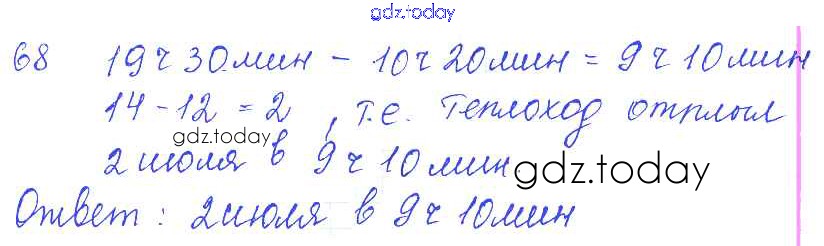 gdz.today
68 19ч 30мин - 10ч 20мин = 9ч 10мин
14-12 = 2 , т.е. теплоход отплыл
gdz.today
2 июля в 9ч 10мин.
gdz.today
Ответ: 2июля в 9ч 10мин